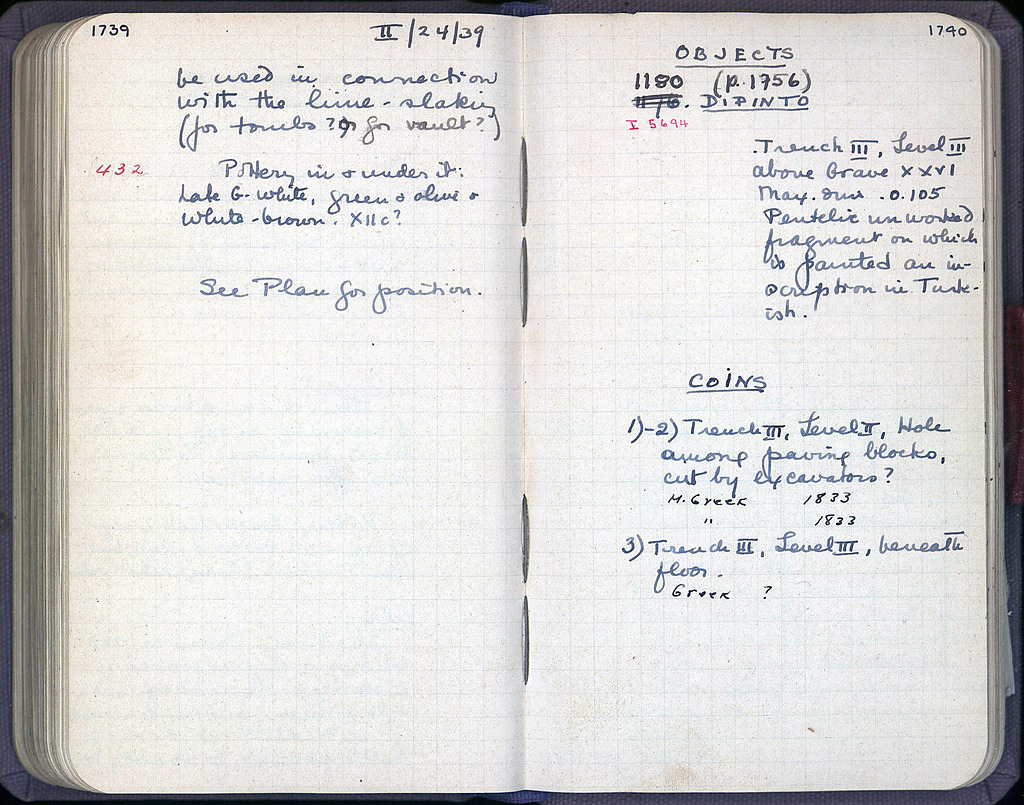 1739
II/24/39
be used in connection
with the lime-slaking
(for tombs? or for vault?)
432
Pottery in + under it:
Late G-white, green + olive +
white-brown. XIIc?
See Plan for position.
1740
OBJECTS
1180 (p. 1756)
1176. DIPINTO
I 5694
Trench III, Level III
above Grave XXVI
Max. dim. 0.105
Pentelic unworked
fragment on which
is painted an in-
scription in Turk-
ish.
COINS
1)-2) Trench III, Level II, Hole
among paving blocks,
cut by excavators?
M. Greek 1833
" 1833
3) Trench III, Level III, beneath
floor.
Greek ?